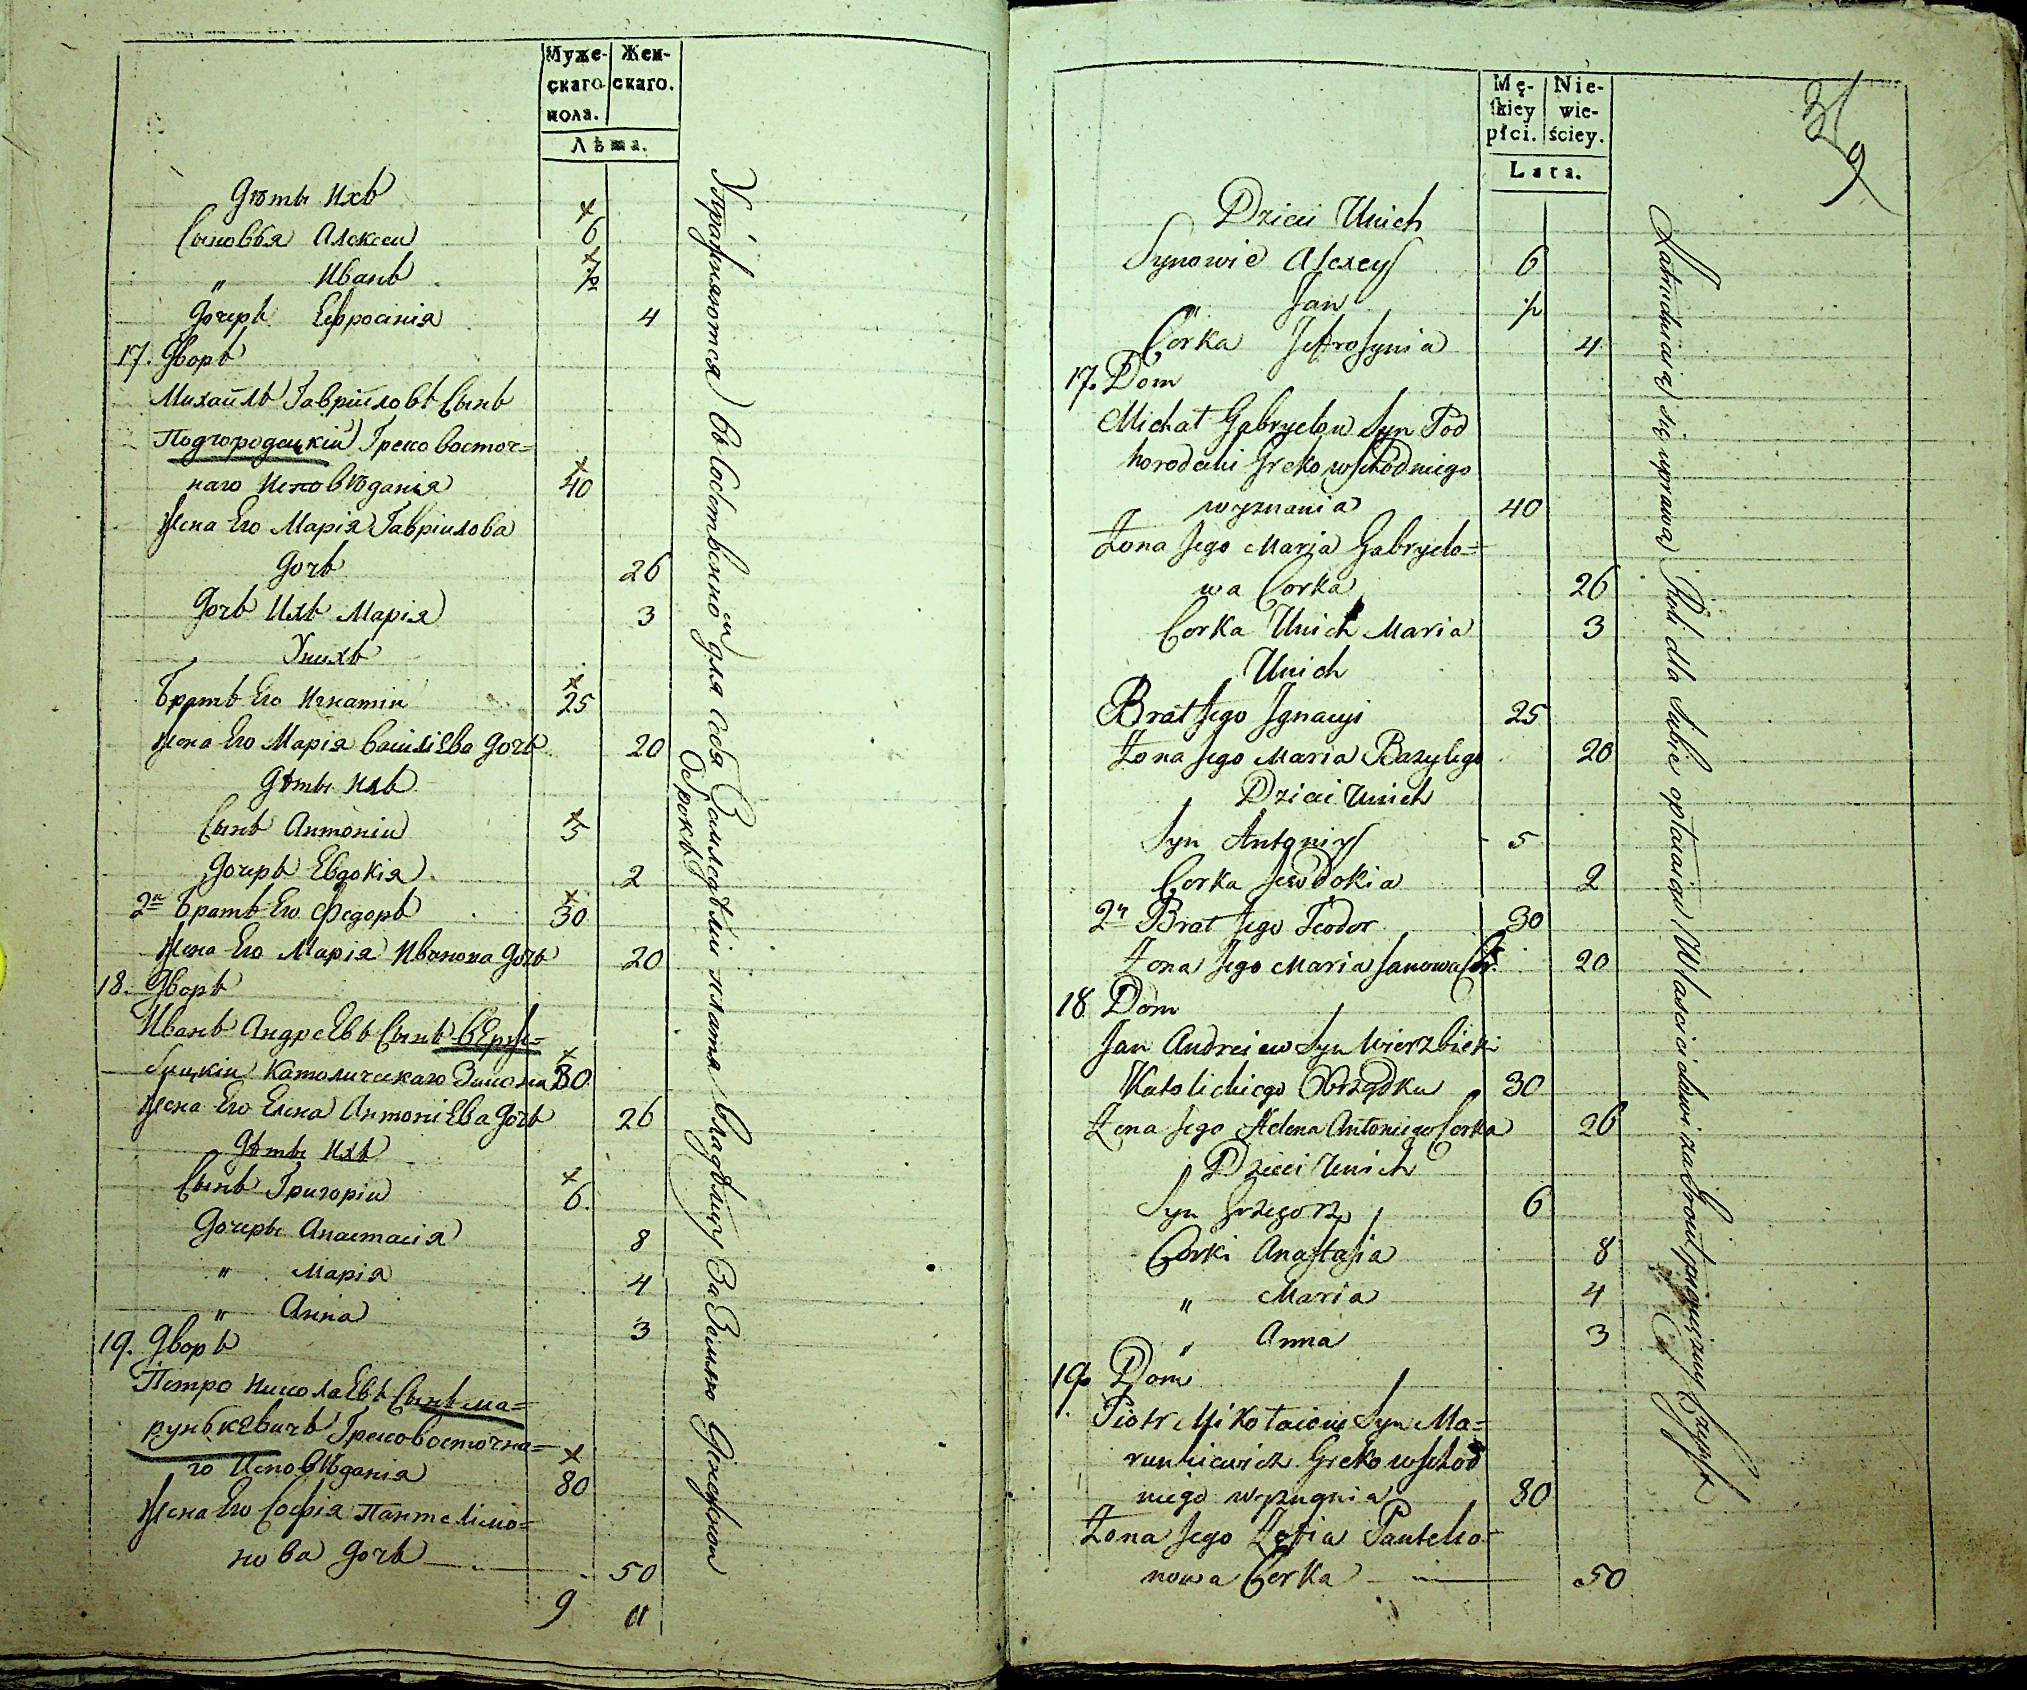 Муже- Жен-
скаго скаго.
пола.
Лѣта.
Дѣти Ихъ
Сыновья Алексеи 6
" Иванъ ½
Дочерь Ефросинія 4
17. Дворъ
Михаилъ Гавріиловъ Сынъ
Подгородецкій Греко восточ=
наго Исповѣданія 40
Жена Его Марія Гавріилова
Дочь 26
Дочь Ихъ Марія 3
Унихъ
Братъ Его Игнатіи 25
Жена Его Марія Василіева Дочь 20
Дѣти Ихъ
Сынъ Антоніи 5
Дочерь Евдокія 2
2й Братъ Его Федоръ 30
Жена Его Марія Иванова Дочь 20
18. Дворъ
Иванъ Андреевъ Сынъ Верж=
бицкіи Католическаго Закона 30
Жена Его Елена Антоніева Дочь 26
Дѣти Ихъ
Сынъ Григоріи 6
Дочеры Анастасія 8
" Марія 4
" Анна 3
19. Дворъ
Петро Николаевъ Сынъ Ма=
рунькевичъ Грековосточна=
го Исповѣданія 80
Жена Его Софія Пантелімо=
нова Дочь 50
9 11
Упражняются въ Собственно для себя Земледѣліи платя Владѣлцу За Землю Денежнои
Оброкъ
Mę- Nie-
skiey wie-
płci. ściey.
Lata.
9
Dzieci Unich
Synowie Alexey 6
" Jan ½
Corka Jefrosynia 4
17. Dom
Michał Gabryelow Syn Pod
horodecki Greko wschodniego
wyznania 40
Zona Jego Marja Gabryelo=
wa Corka 26
Corka Unich Maria 3
Unich
Brat Jego Jgnacyi 25
Zona Jego Maria Bazylego 20
Dzieci Unich
Syn Antoniy 5
Corka Jewdokia 2
2i Brat Jego Teodor 30
Zona Jego Maria Janowa 20
18 Dom
Jan Andreiew Syn Wierzbicki
Katolickiego Obrządku 30
Zona Jego Helena Antoniego Corka 26
Dzieci Unich
Syn Grzegorz 6
Corki Anastasia 8
" Maria 4
" Anna 3
19. Dom
Piotr Mikołaiow Syn Ma=
runkiewicz Greko wschod
niego wyznania 80
Zona Jego Zofia Pantelio-
nowa Corka 50
Zatrudniaią się uprawą Roli dla siebie opłacaiąc Właścicielowi za Grunt pieniężny Czynsz